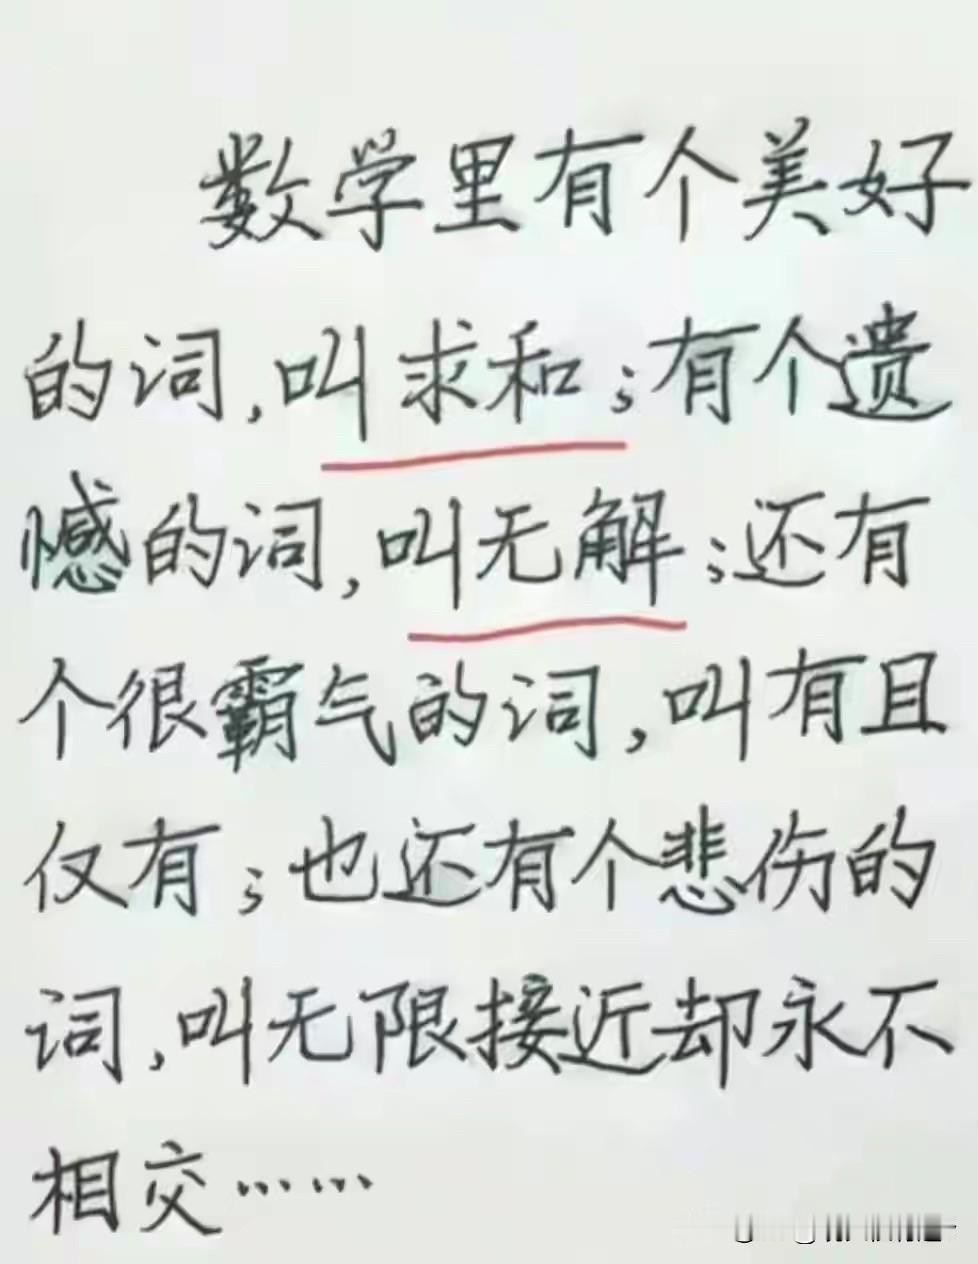 数学里有个美好
的词,叫求和;有个遗
憾的词,叫无解;还有
个很霸气的词,叫有且
仅有;也还有个悲伤的
词,叫无限接近却永不
相交……